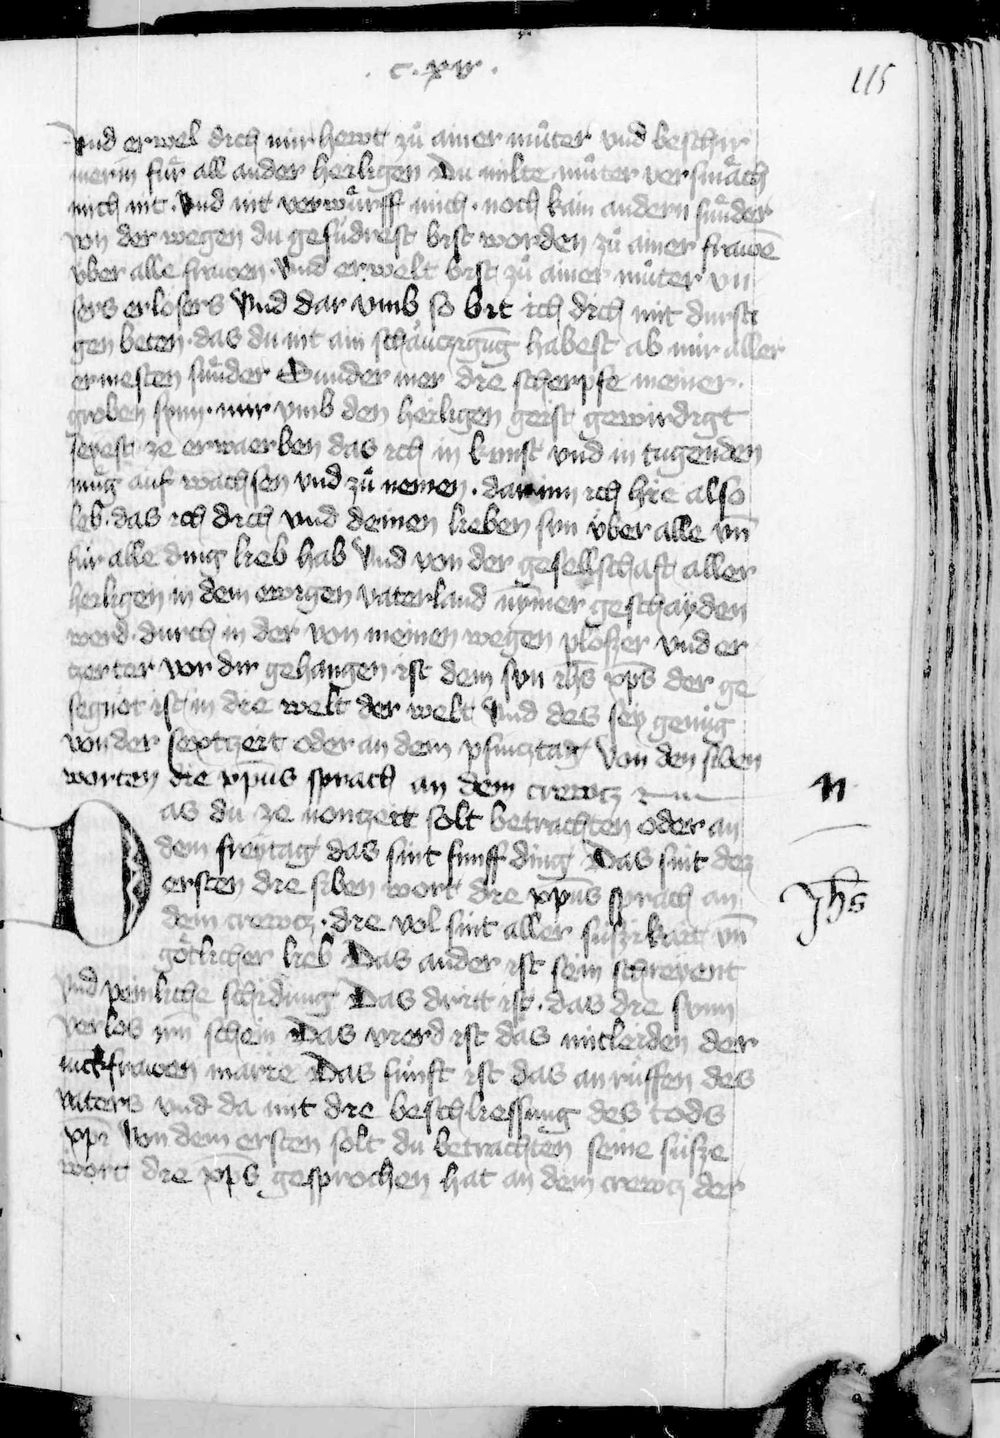 . c . xv .
115
vnd erwel dich mir hewt zů ainer můter vnd beschir
merin fúr all ander heiligen Du milte můter versmäch
mich nit . Vnd nit verwúrff mich . noch kain andern súnder
von der wegen du gefúdrest bist worden zů ainer frawē
vber alle frawen . Vnd erwelt bist zů ainer můter vn
sers erlosers Vnd dar vmb so bit ich dich mit dursti
gen beten . das du nit ain schäuczigūg habest ab mir aller
ermesten súnder Sunder mer die scherpfe meiner .
groben synn . mir vmb den heiligen geist gewirdigt
seyest ze erwaerben das ich in kunst vnd in tugenden
múg auf wachsen vnd zů nemen . darinn ich hie also
leb . das ich dich vnd deinen lieben sun vber alle vn̄
fúr alle ding lieb hab Vnd von der geselschaft aller
heiligen in dem ewigen vaterland nȳmer geschayden
werd . durch in der von meinen wegen plosser vnd er
tzerter vor dir gehangen ist dein sun ih̄s xp̄s der ge
segnot ist in die welt der welt Vnd des sey genúg
von der sextzeit oder an dem pfincztag Von den siben
worten die xp̄us sprach an dem crewcz
Das du ze nontzeit solt betrachten oder an
dem freytag das sint funff ding Das sint dez
ersten die siben wort die xp̄us sprach an
dem crewcz . die vol sint aller súszikait vn̄
götlicher lieb Das ander ist sein schreyent
vnd peinliche schidung Das dritt ist . das die sunn
verlos irn̄ schein Das vierd ist das mitleiden der
iunckfrawen marie Das fúnft ist das an rúffen des
vaters vnd da mit die beschliessung des tods
xp̄i Von dem ersten solt du betrachten seine súsze
wort die xp̄s gesprochen hat an dem crewcz der
n
Jh̄s